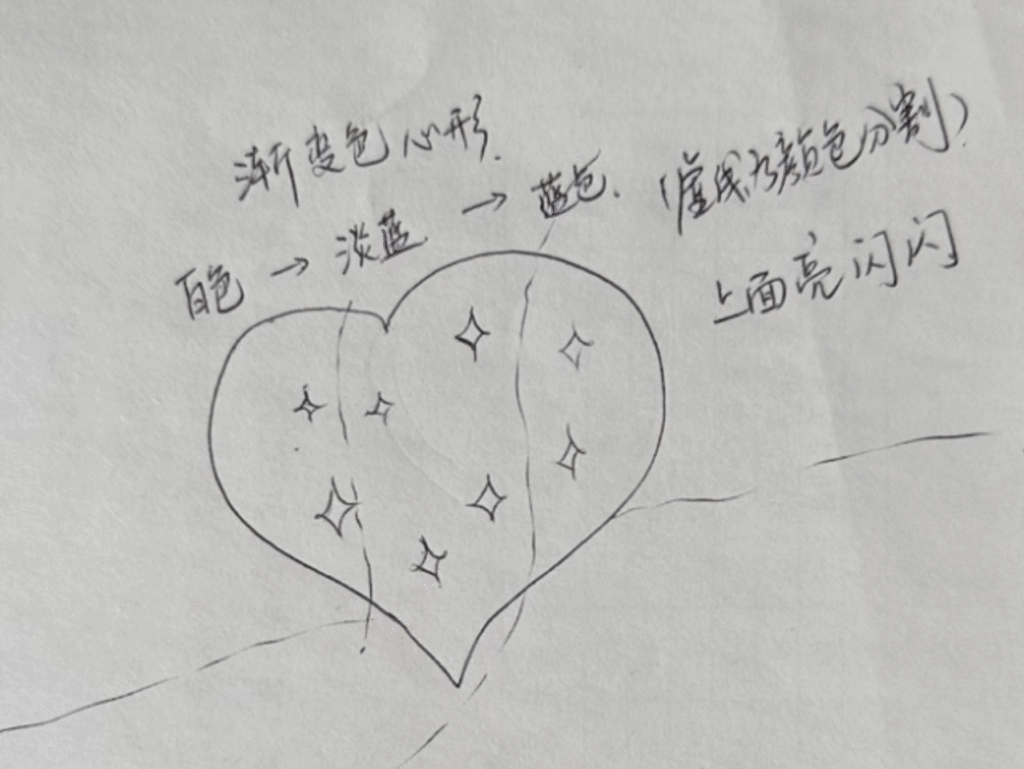 渐变色心形.
白色 → 淡蓝 → 蓝色. (虚线为颜色分割)
上面亮闪闪